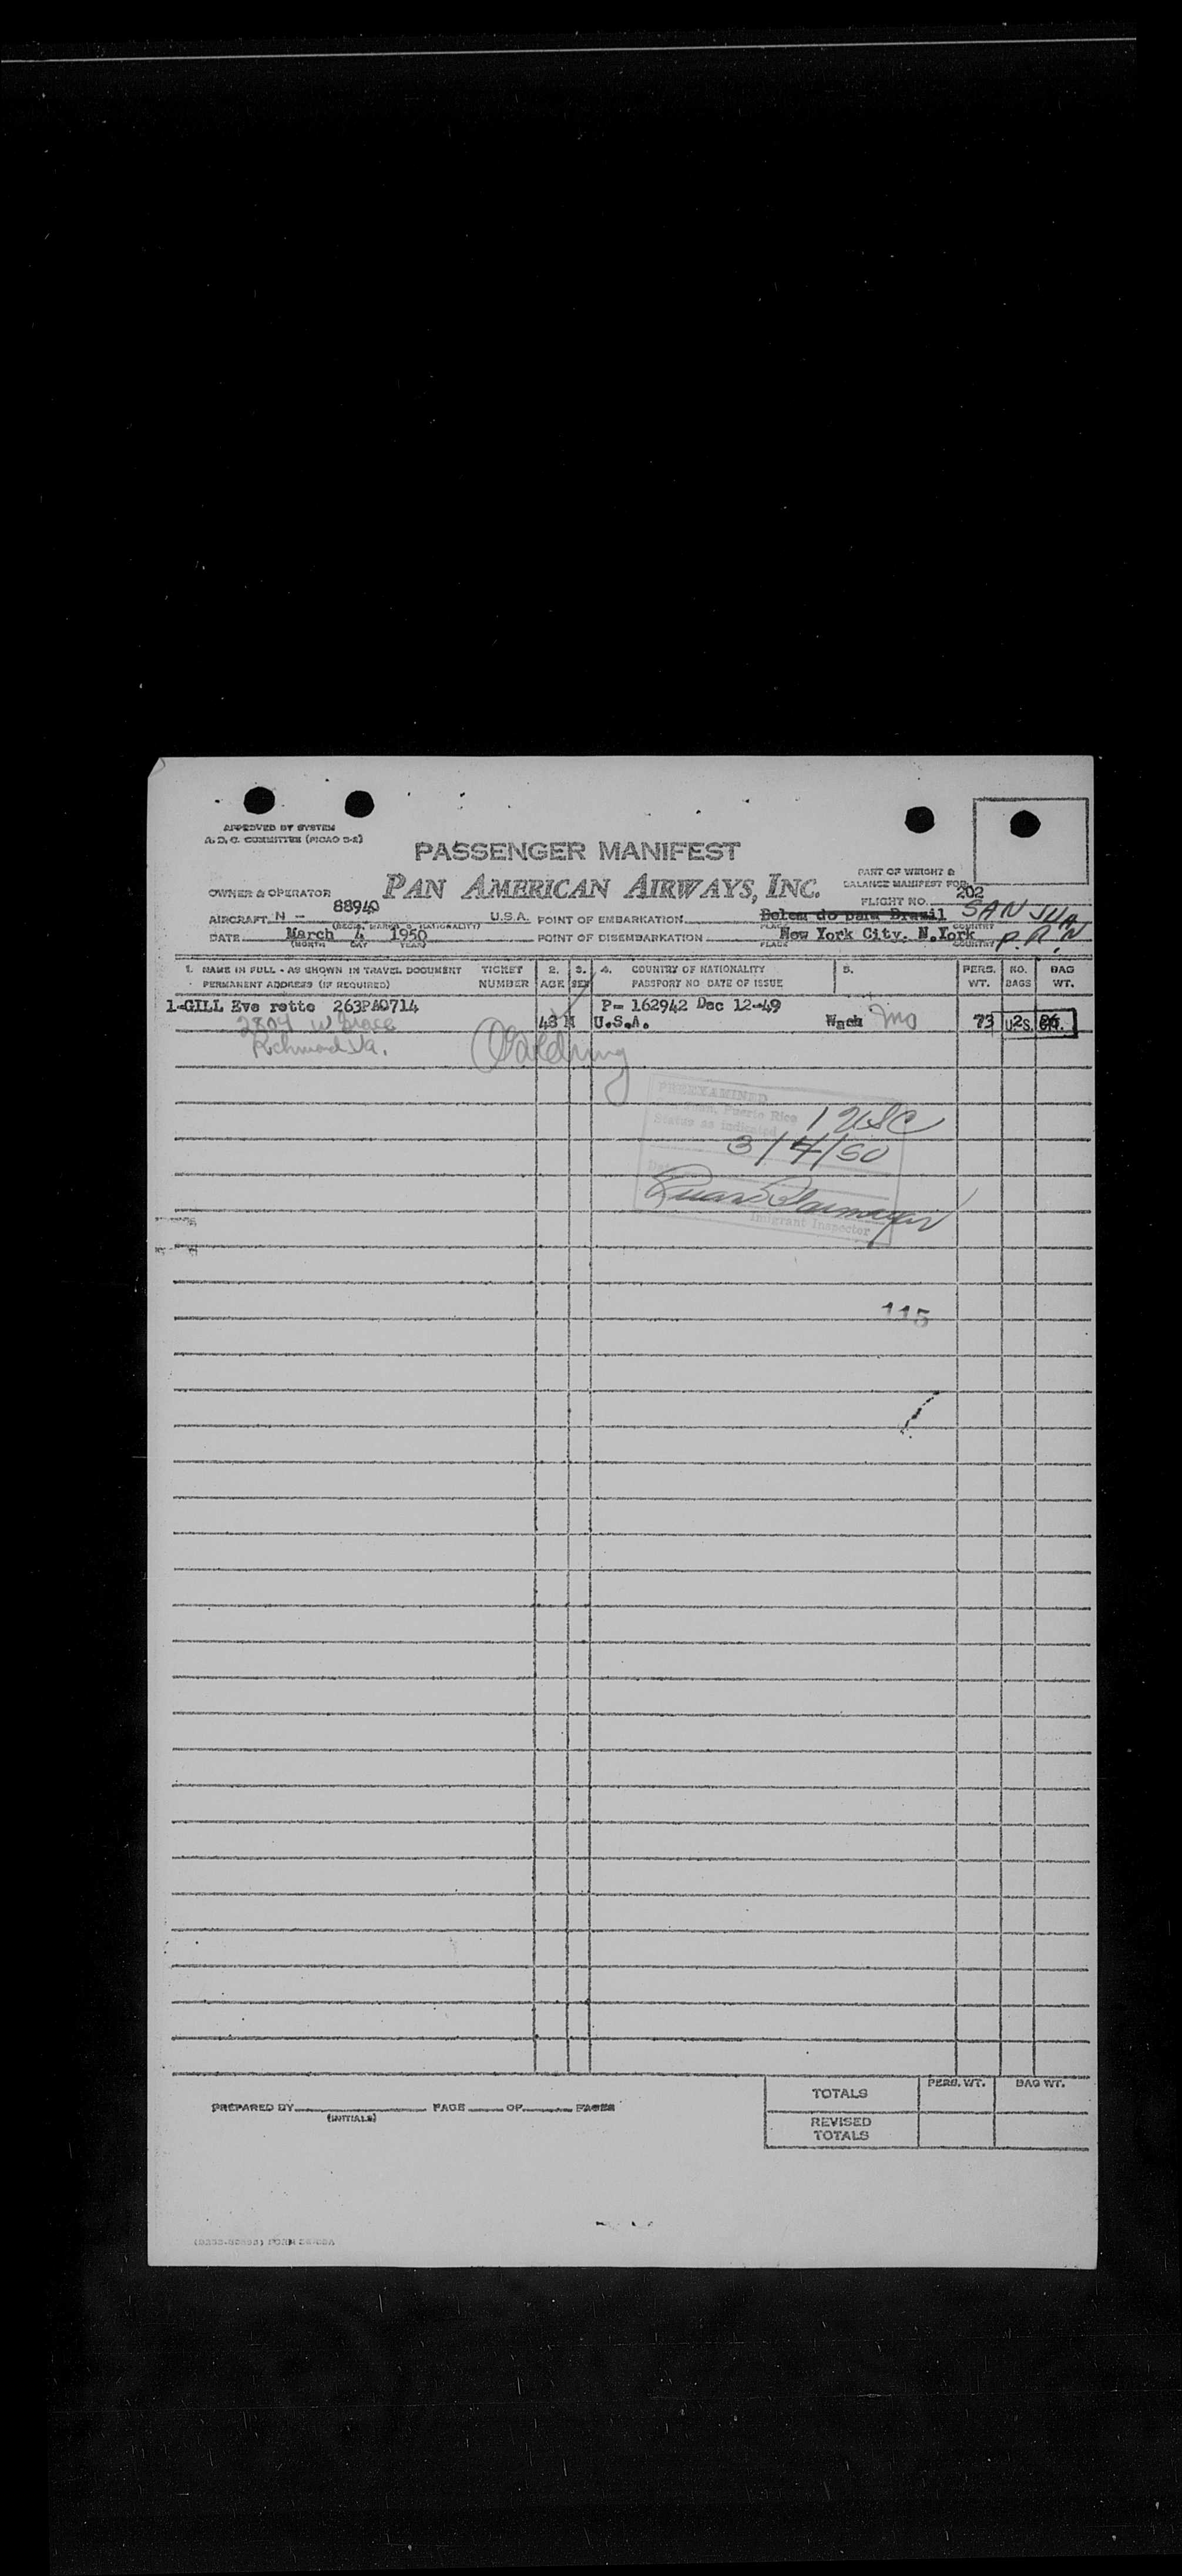 APPROVED BY SYSTEM
A. D. C. COMMITTEE (PICAO 3-2)
PASSENGER MANIFEST
PAN AMERICAN AIRWAYS, INC.
PART OF WEIGHT &
BALANCE MANIFEST FOR
OWNER & OPERATOR
FLIGHT NO. 202
AIRCRAFT N - 88940 U.S.A. POINT OF EMBARKATION Belem do para Brazil SAN JUAN
(REGIS. MARKS & NATIONALITY) PLACE COUNTRY
DATE March 4 1950 POINT OF DISEMBARKATION New York City. N.York P.R.
(MONTH DAY YEAR) PLACE COUNTRY
1. NAME IN FULL - AS SHOWN IN TRAVEL DOCUMENT TICKET 2. 3. 4. COUNTRY OF NATIONALITY 5. PERS. NO. BAG
PERMANENT ADDRESS (IF REQUIRED) NUMBER AGE SEX PASSPORT NO DATE OF ISSUE WT. BAGS WT.
1-GILL Eve rette 263PA0714 P- 162942 Dec 12-49
2804 W Grace 48 M U.S.A. Wach Mo 73 2 U.S. CIT.
Richmond Va.
PREEXAMINED
San Juan, Puerto Rico
Status as indicated
1 USC
3/4/50
Immigrant Inspector
115
TOTALS PERS. WT. BAG WT.
PREPARED BY PAGE OF PAGES
(INITIALS)
REVISED
TOTALS